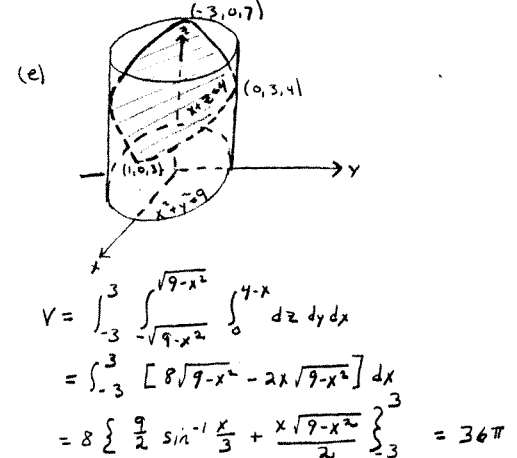 (-3,0,7)
z
(e)
(0,3,4)
x+z=4
(1,0,3)
y
x²+y²=9
x
V = ∫_{-3}^{3} ∫_{-√(9-x²)}^{√(9-x²)} ∫_{0}^{4-x} dz dy dx
= ∫_{-3}^{3} [8√(9-x²) - 2x√(9-x²)] dx
= 8 { 9/2 sin⁻¹ x/3 + x√(9-x²)/2 }_{-3}^{3} = 36π